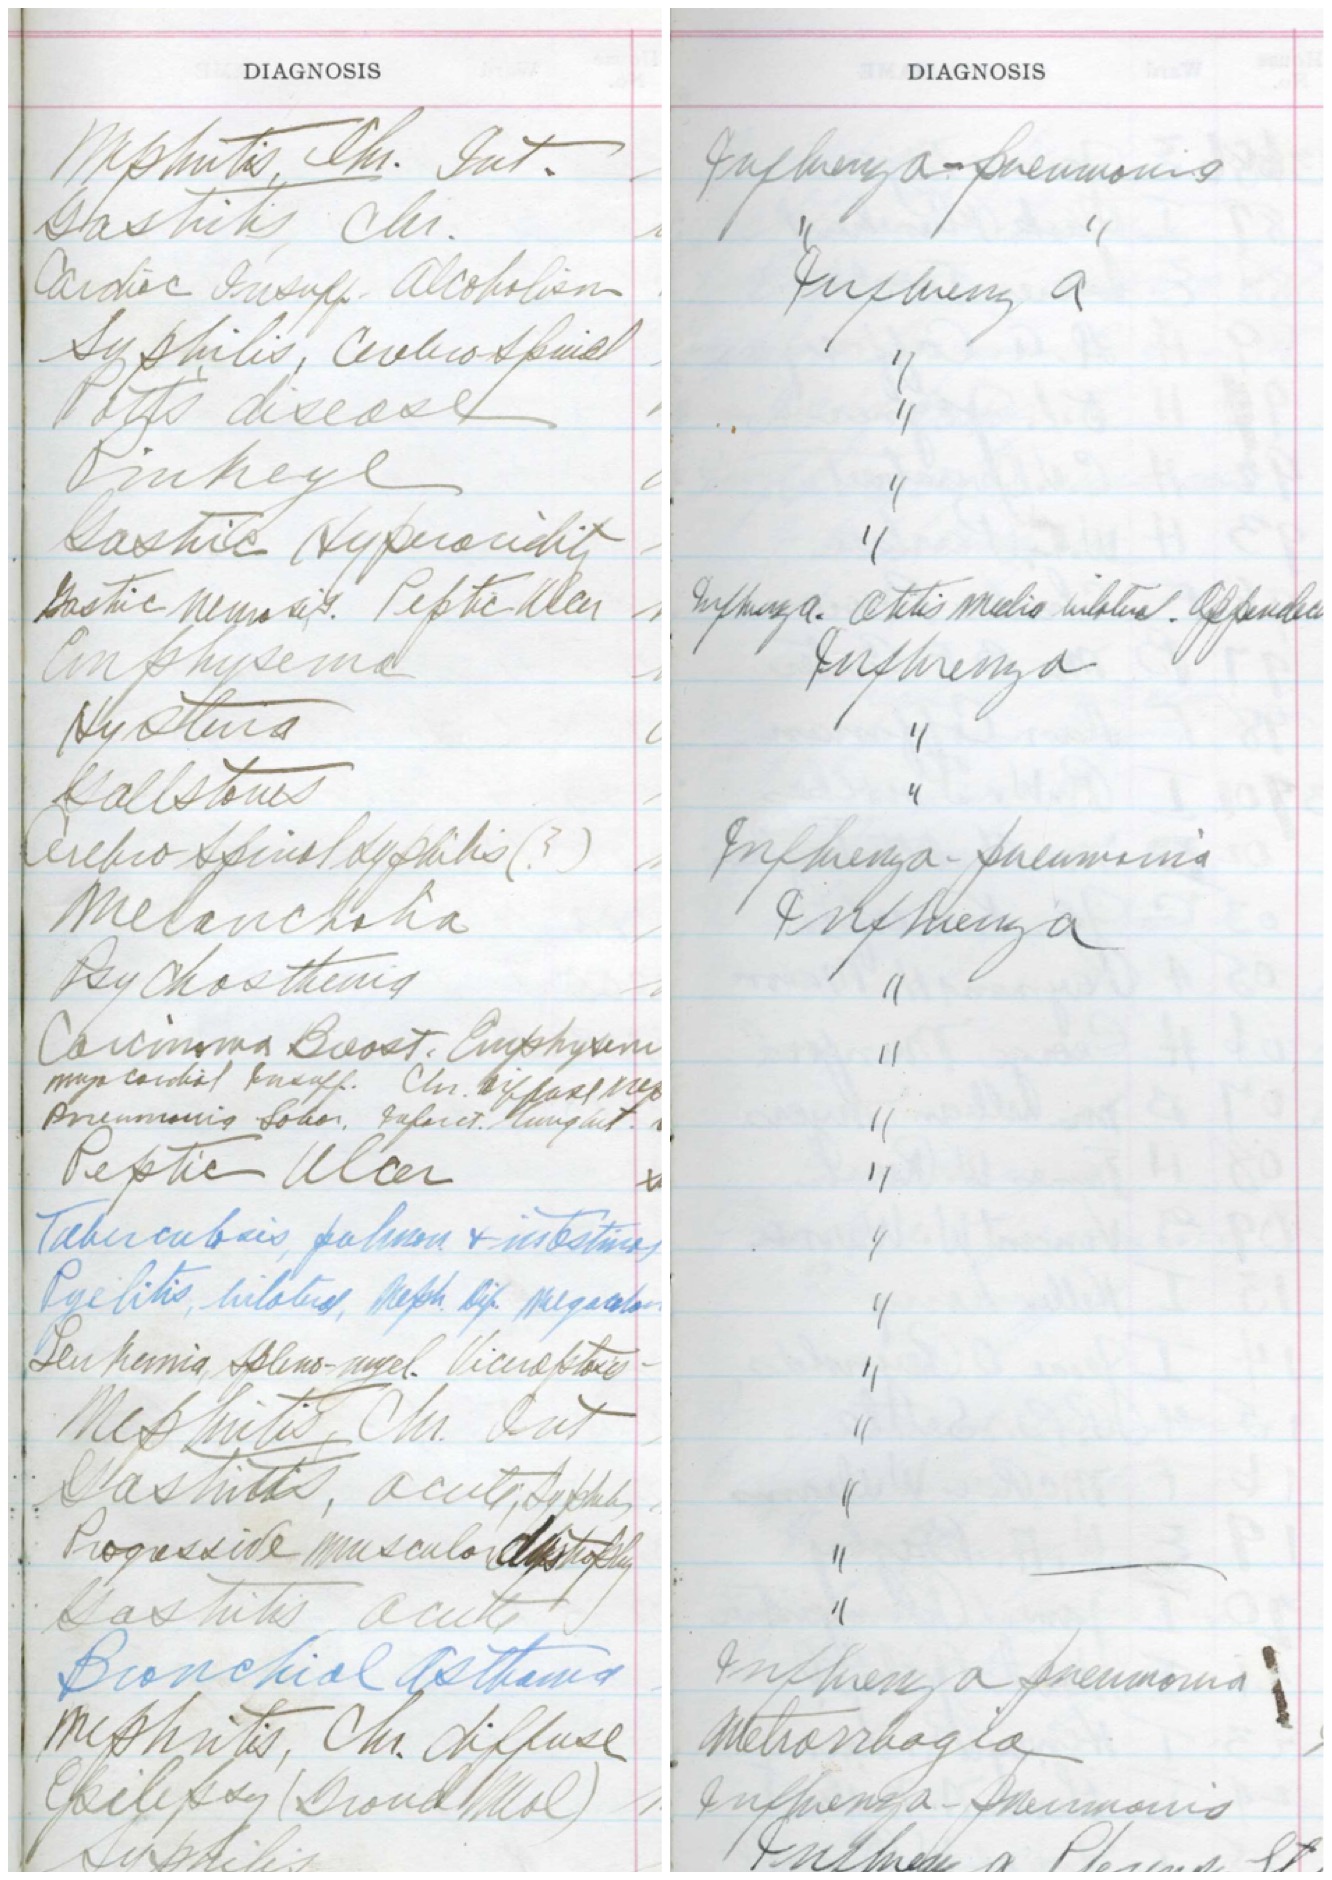 DIAGNOSIS
Nephritis, Chr. Int.
Gastritis, Chr.
Cardiac Insuff. Alcoholism
Syphilis, Cerebrospinal
Potts disease
Pinkeye
Gastric Hyperacidity
Gastric Neurosis. Peptic Ulcer
Emphysema
Hysteria
Gallstones
Cerebro Spinal Syphilis (?)
Melancholia
Psychosthenia
Carcinoma Breast. Emphysem
Myocardial Insuff. Chr. diffuse Nep
Pneumonia Lobar. Infarct. Lung
Peptic Ulcer
Tuberculosis, pulmon + intestinos
Pyelitis, bilateral, Neph. Dif. Megacolon
Leukemia, Spleno-myel. Viceroptosis -
Nephritis, Chr. Int
Gastritis, acute, Syphilis
Progressive muscular dystrophy
Gastritis acute
Bronchial Asthma
Nephritis, Chr. diffuse
Epilepsy (Grand Mal)
Syphilis
DIAGNOSIS
Influenza - pneumonia
" "
Influenza
"
"
"
"
Influenza. Otitis media bilateral. Appendec
Influenza
"
"
Influenza - pneumonia
Influenza
"
"
"
"
"
"
"
"
"
"
"
Influenza pneumonia
Metrorrhagia
Influenza - pneumonia
Influenza